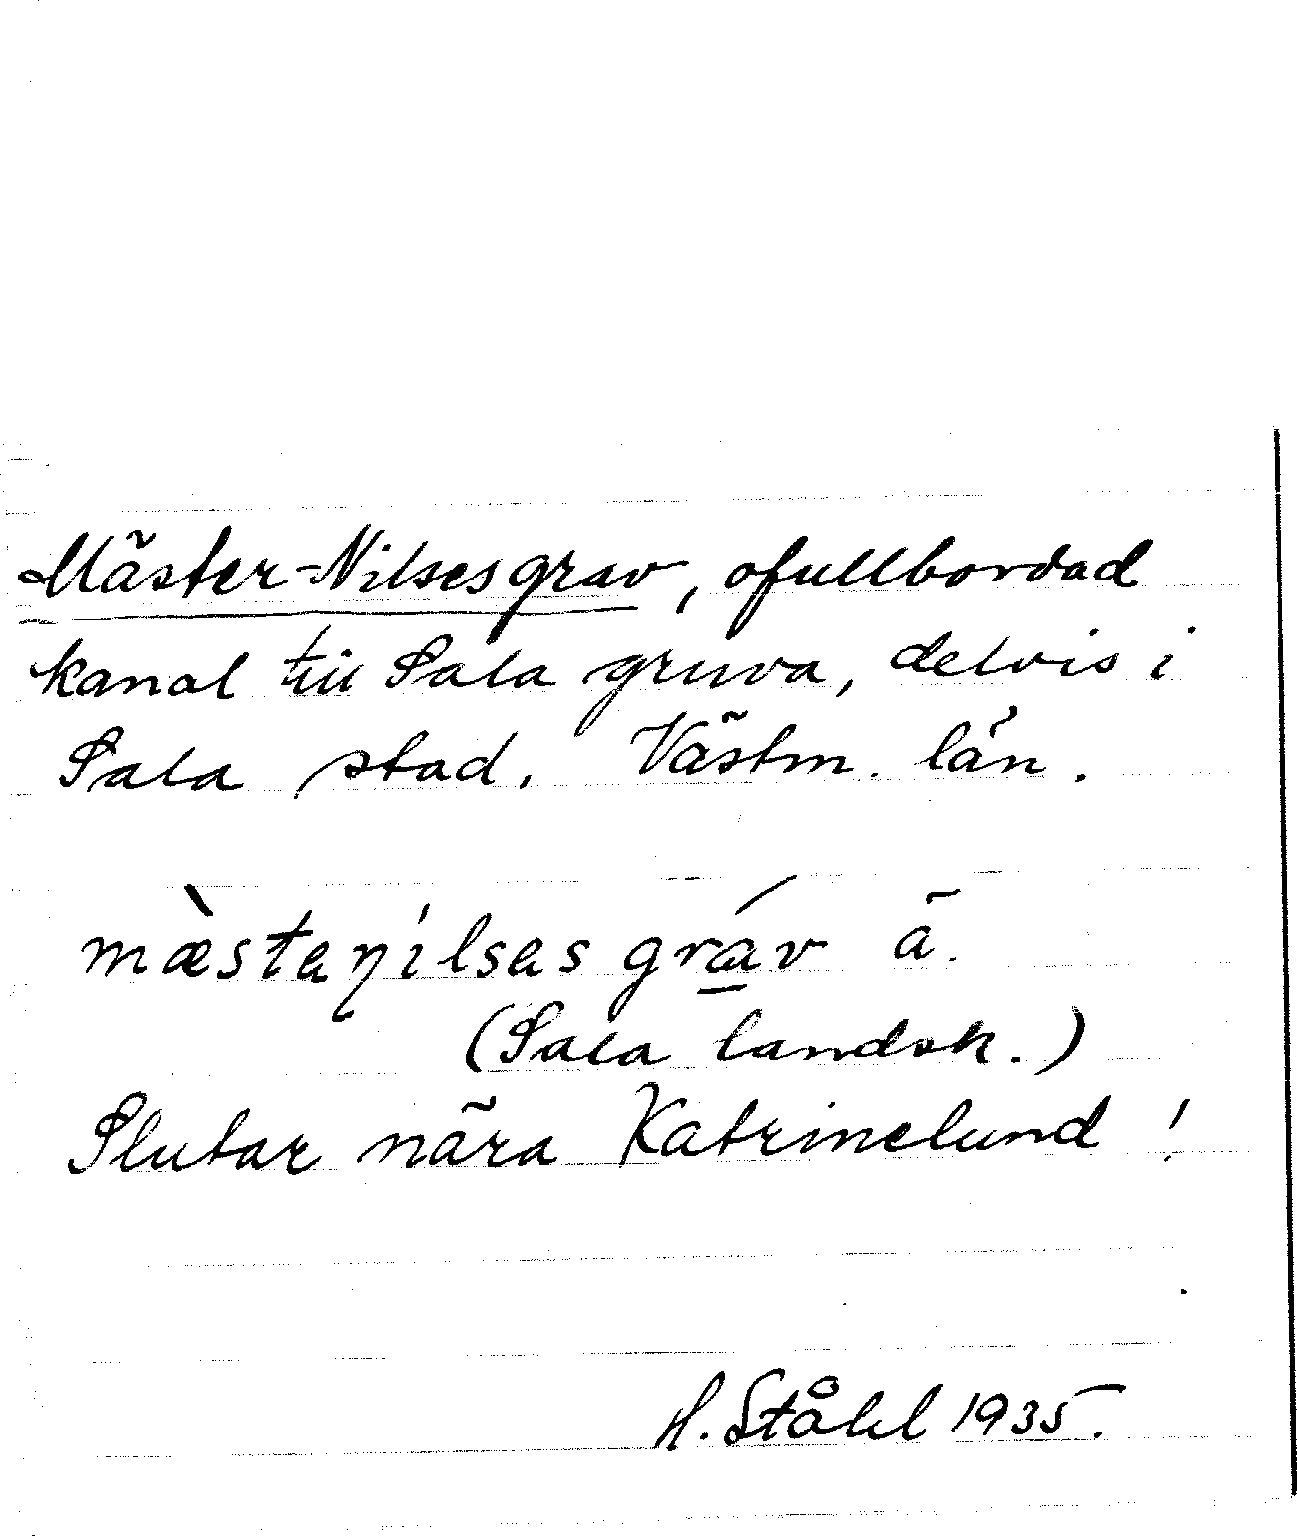 Mäster-Nilsesgrav, ofullbordad
kanal till Sala gruva, delvis i
Sala stad. Västm. län.
mæ̀staɳilsas grá̱v ä.
(Sala landsk.)
Slutar nära Katrinelund!
H. Ståhl 1935.